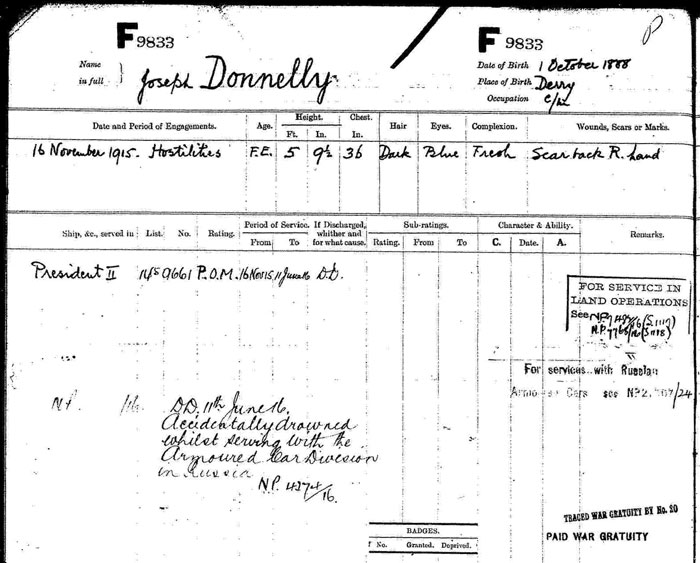 F 9833
F 9833
P
Name in full } Joseph Donnelly
Date of Birth 1 October 1888
Place of Birth Derry
Occupation
Date and Period of Engagements. Age. Height. Ft. In. Chest. In. Hair Eyes. Complexion. Wounds, Scars or Marks.
16 November 1915. Hostilities F.E. 5 9½ 36 Dark Blue Fresh Scar back R. hand
Ship, &c., served in List. No. Rating. Period of Service. From To If Discharged, whither and for what cause. Sub-ratings. Rating. From To Character & Ability. C. Date. A. Remarks.
President II 9661 P.O.M. 16 Nov 15 11 June 16 D.D.
FOR SERVICE IN
LAND OPERATIONS
See N.P.
N.P.
For services with Russian
Armoured Cars see NP2.
N.P. /16. D.D. 11th June 16.
Accidentally drowned
whilst serving with the
Armoured Car Division
in Russia
N.P. 4374/16.
TRACED WAR GRATUITY BY No. 20
PAID WAR GRATUITY
BADGES.
No. Granted. Deprived.